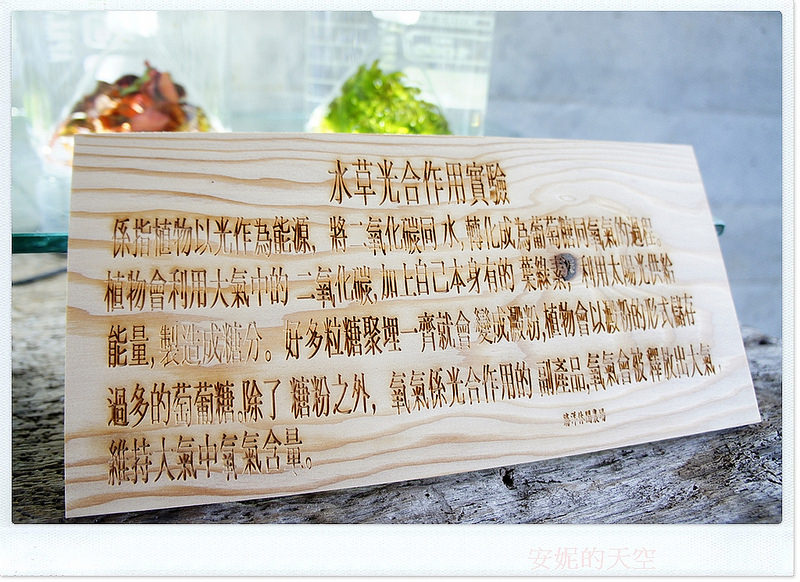 水草光合作用實驗
係指植物以光作為能源, 將二氧化碳同水,轉化成為葡萄糖同氧氣的過程。
植物會利用大氣中的 二氧化碳,加上自己本身有的 葉綠素, 利用太陽光供給
能量,製造成糖分。好多粒糖聚埋一齊就會 變成澱粉,植物會以澱粉的形式儲存
過多的萄葡糖。除了 糖粉之外, 氧氣係光合作用的 副產品,氧氣會被釋放出大氣,
維持大氣中氧氣含量。
安妮的天空